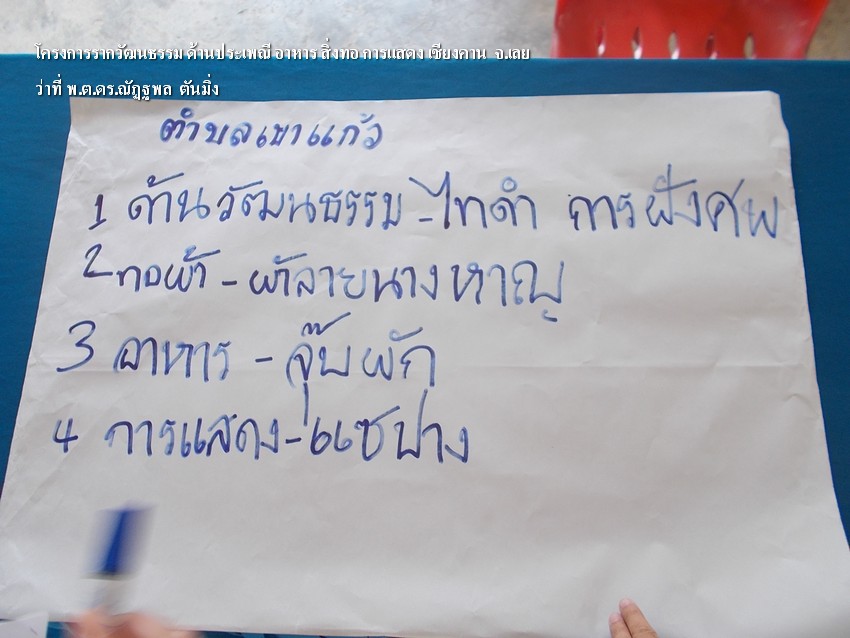 โครงการรากวัฒนธรรม ด้านประเพณี อาหาร สิ่งทอ การแสดง เชียงคาน จ.เลย
ว่าที่ พ.ต.ดร.ณัฏฐพล ตันมิ่ง
ตำบลเขาแก้ว
1 ด้านวัฒนธรรม - ไทดำ การฝังศพ
2 ทอผ้า - ผ้าลายนางหาญ
3 อาหาร - จุ๊บผัก
4 การแสดง - แซปาง